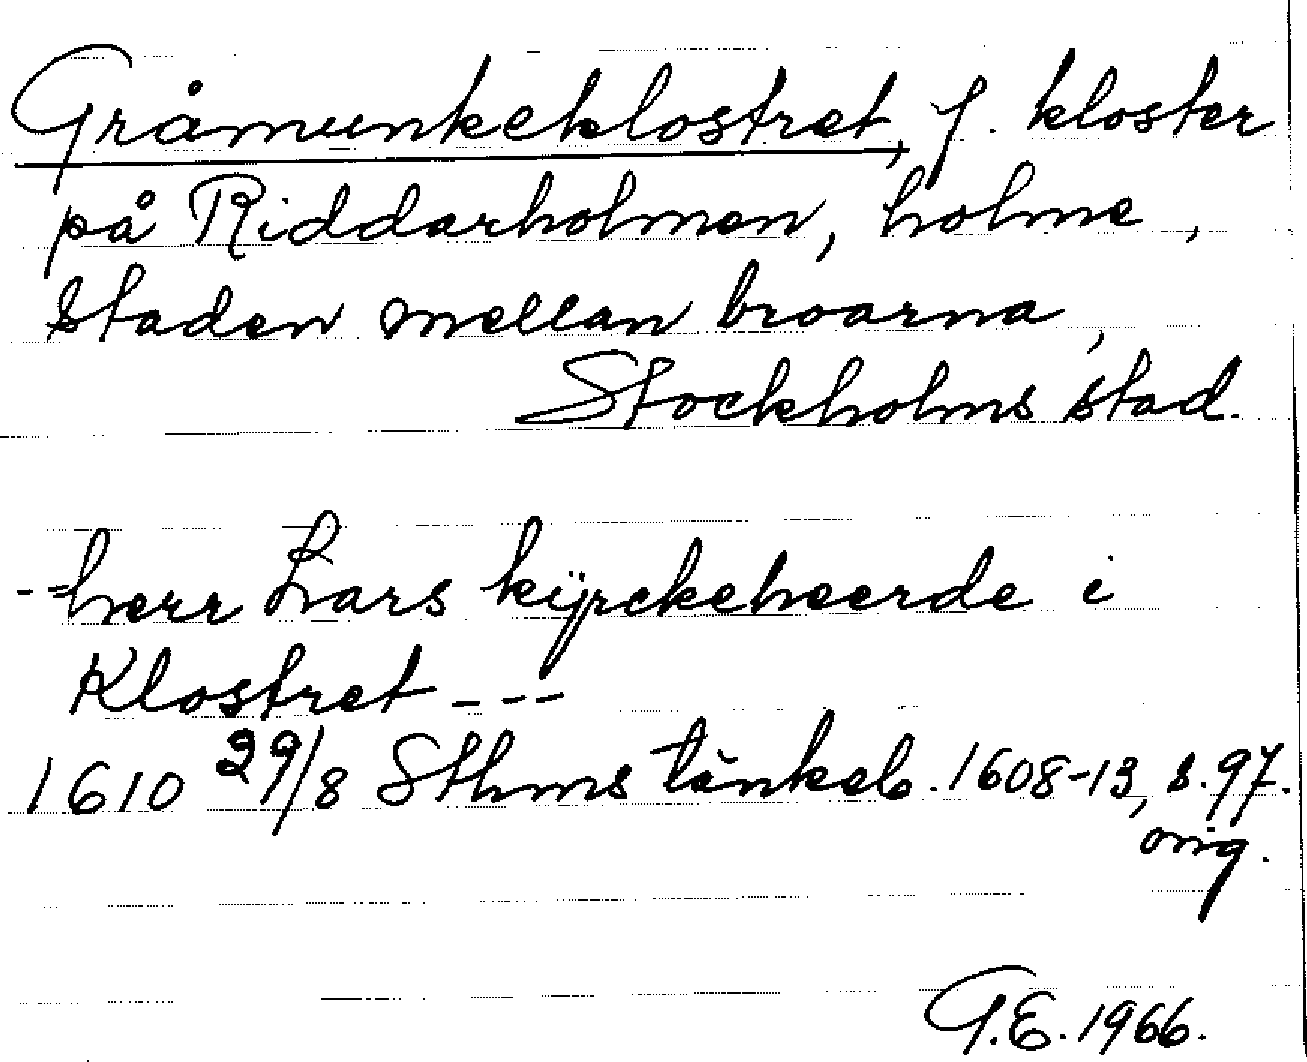 Gråmunkeklostret, f. kloster
på Riddarholmen, holme,
staden mellan broarna,
Stockholms stad.
--herr Lars kÿrckeheerde i
Klostret ---
1610 29/8 Sthms tänkeb. 1608-13, s. 97.
orig.
G.E. 1966.